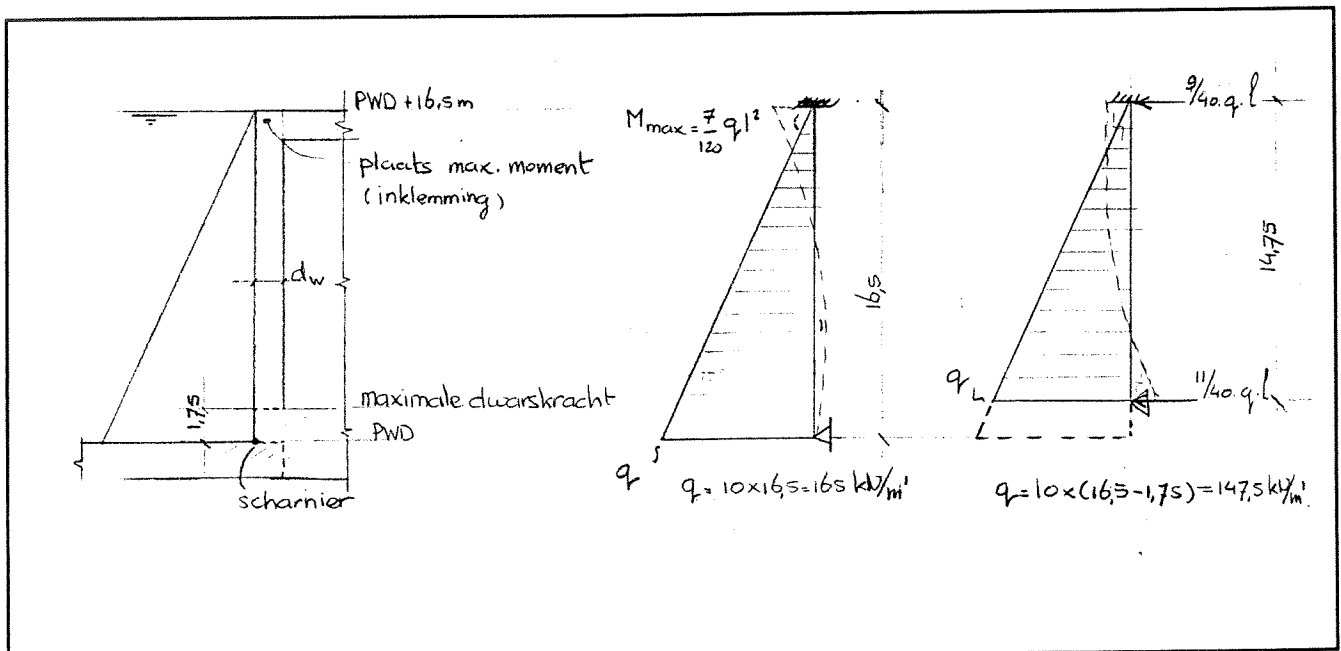 PWD+16,5m
plaats max. moment
(inklemming)
dw
1,75
maximale dwarskracht
PWD
scharnier
Mmax = 7/120 q l²
16,5
q
q = 10 x 16,5 = 165 kN/m'
9/40.q.l
14,75
q
11/40.q.l
q = 10 x (16,5 - 1,75) = 147,5 kN/m'